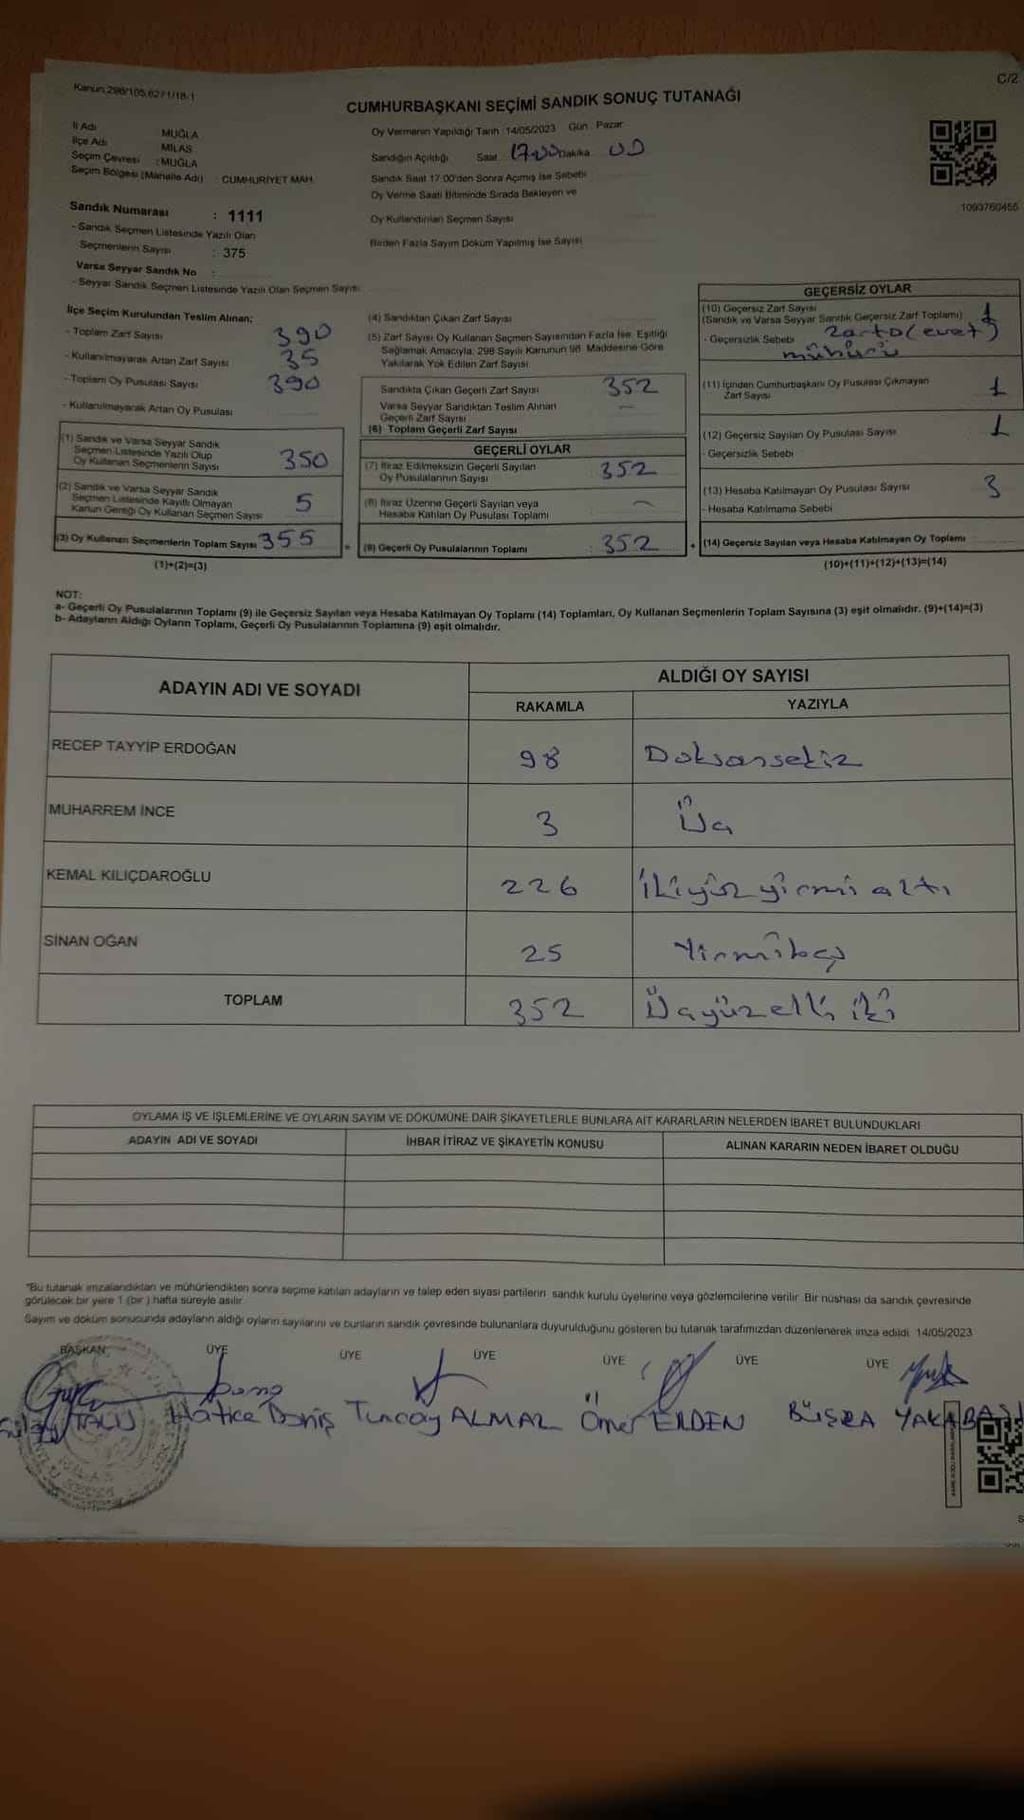 Kanun:298/105,6271/18-1
C/2
CUMHURBAŞKANI SEÇİMİ SANDIK SONUÇ TUTANAĞI
İl Adı : MUĞLA
İlçe Adı : MİLAS
Seçim Çevresi : MUĞLA
Seçim Bölgesi (Mahalle Adı) : CUMHURİYET MAH.
Sandık Numarası : 1111
- Sandık Seçmen Listesinde Yazılı Olan
Seçmenlerin Sayısı : 375
Varsa Seyyar Sandık No :
- Seyyar Sandık Seçmen Listesinde Yazılı Olan Seçmen Sayısı:
Oy Vermenin Yapıldığı Tarih :14/05/2023 Gün : Pazar
Sandığın Açıldığı Saat 17:00 Dakika 00
Sandık Saat 17:00'den Sonra Açılmış İse Sebebi
Oy Verme Saati Bitiminde Sırada Bekleyen ve
Oy Kullandırılan Seçmen Sayısı
Birden Fazla Sayım Döküm Yapılmış İse Sayısı
1093760455
İlçe Seçim Kurulundan Teslim Alınan;
- Toplam Zarf Sayısı 390
- Kullanılmayarak Artan Zarf Sayısı 35
- Toplam Oy Pusulası Sayısı 390
- Kullanılmayarak Artan Oy Pusulası
(1) Sandık ve Varsa Seyyar Sandık
Seçmen Listesinde Yazılı Olup
Oy Kullanan Seçmenlerin Sayısı 350
(2) Sandık ve Varsa Seyyar Sandık
Seçmen Listesinde Kayıtlı Olmayan
Kanun Gereği Oy Kullanan Seçmen Sayısı 5
(3) Oy Kullanan Seçmenlerin Toplam Sayısı 355
(1)+(2)=(3)
(4) Sandıktan Çıkan Zarf Sayısı
(5) Zarf Sayısı Oy Kullanan Seçmen Sayısından Fazla İse, Eşitliği
Sağlamak Amacıyla, 298 Sayılı Kanunun 98. Maddesine Göre
Yakılarak Yok Edilen Zarf Sayısı
Sandıkta Çıkan Geçerli Zarf Sayısı 352
Varsa Seyyar Sandıktan Teslim Alınan
Geçerli Zarf Sayısı —
(6) Toplam Geçerli Zarf Sayısı
GEÇERLİ OYLAR
(7) İtiraz Edilmeksizin Geçerli Sayılan
Oy Pusulalarının Sayısı 352
(8) İtiraz Üzerine Geçerli Sayılan veya
Hesaba Katılan Oy Pusulası Toplamı —
(9) Geçerli Oy Pusulalarının Toplamı : 352
GEÇERSİZ OYLAR
(10) Geçersiz Zarf Sayısı 1
(Sandık ve Varsa Seyyar Sandık Geçersiz Zarf Toplamı)
- Geçersizlik Sebebi zarfta (evet)
mühürü
(11) İçinden Cumhurbaşkanı Oy Pusulası Çıkmayan
Zarf Sayısı 1
(12) Geçersiz Sayılan Oy Pusulası Sayısı 1
- Geçersizlik Sebebi
(13) Hesaba Katılmayan Oy Pusulası Sayısı 3
- Hesaba Katılmama Sebebi
(14) Geçersiz Sayılan veya Hesaba Katılmayan Oy Toplamı
(10)+(11)+(12)+(13)=(14)
NOT:
a- Geçerli Oy Pusulalarının Toplamı (9) ile Geçersiz Sayılan veya Hesaba Katılmayan Oy Toplamı (14) Toplamları, Oy Kullanan Seçmenlerin Toplam Sayısına (3) eşit olmalıdır. (9)+(14)=(3)
b- Adayların Aldığı Oyların Toplamı, Geçerli Oy Pusulalarının Toplamına (9) eşit olmalıdır.
ADAYIN ADI VE SOYADI
ALDIĞI OY SAYISI
RAKAMLA YAZIYLA
RECEP TAYYİP ERDOĞAN 98 Doksansekiz
MUHARREM İNCE 3 Üç
KEMAL KILIÇDAROĞLU 226 İkiyüz yirmi altı
SİNAN OĞAN 25 Yirmibeş
TOPLAM 352 Üçyüzelli iki
OYLAMA İŞ VE İŞLEMLERİNE VE OYLARIN SAYIM VE DÖKÜMÜNE DAİR ŞİKAYETLERLE BUNLARA AİT KARARLARIN NELERDEN İBARET BULUNDUKLARI
ADAYIN ADI VE SOYADI İHBAR İTİRAZ VE ŞİKAYETİN KONUSU ALINAN KARARIN NEDEN İBARET OLDUĞU
*Bu tutanak imzalandıktan ve mühürlendikten sonra seçime katılan adayların ve talep eden siyasi partilerin sandık kurulu üyelerine veya gözlemcilerine verilir. Bir nüshası da sandık çevresinde
görülecek bir yere 1 (bir ) hafta süreyle asılır.
Sayım ve döküm sonucunda adayların aldığı oyların sayılarını ve bunların sandık çevresinde bulunanlara duyurulduğunu gösteren bu tutanak tarafımızdan düzenlenerek imza edildi. 14/05/2023
BAŞKAN ÜYE ÜYE ÜYE ÜYE ÜYE ÜYE
TALU Hatice Deniş Tuncay ALMAZ Ömer ERDEN BÜŞRA YAKABAŞI